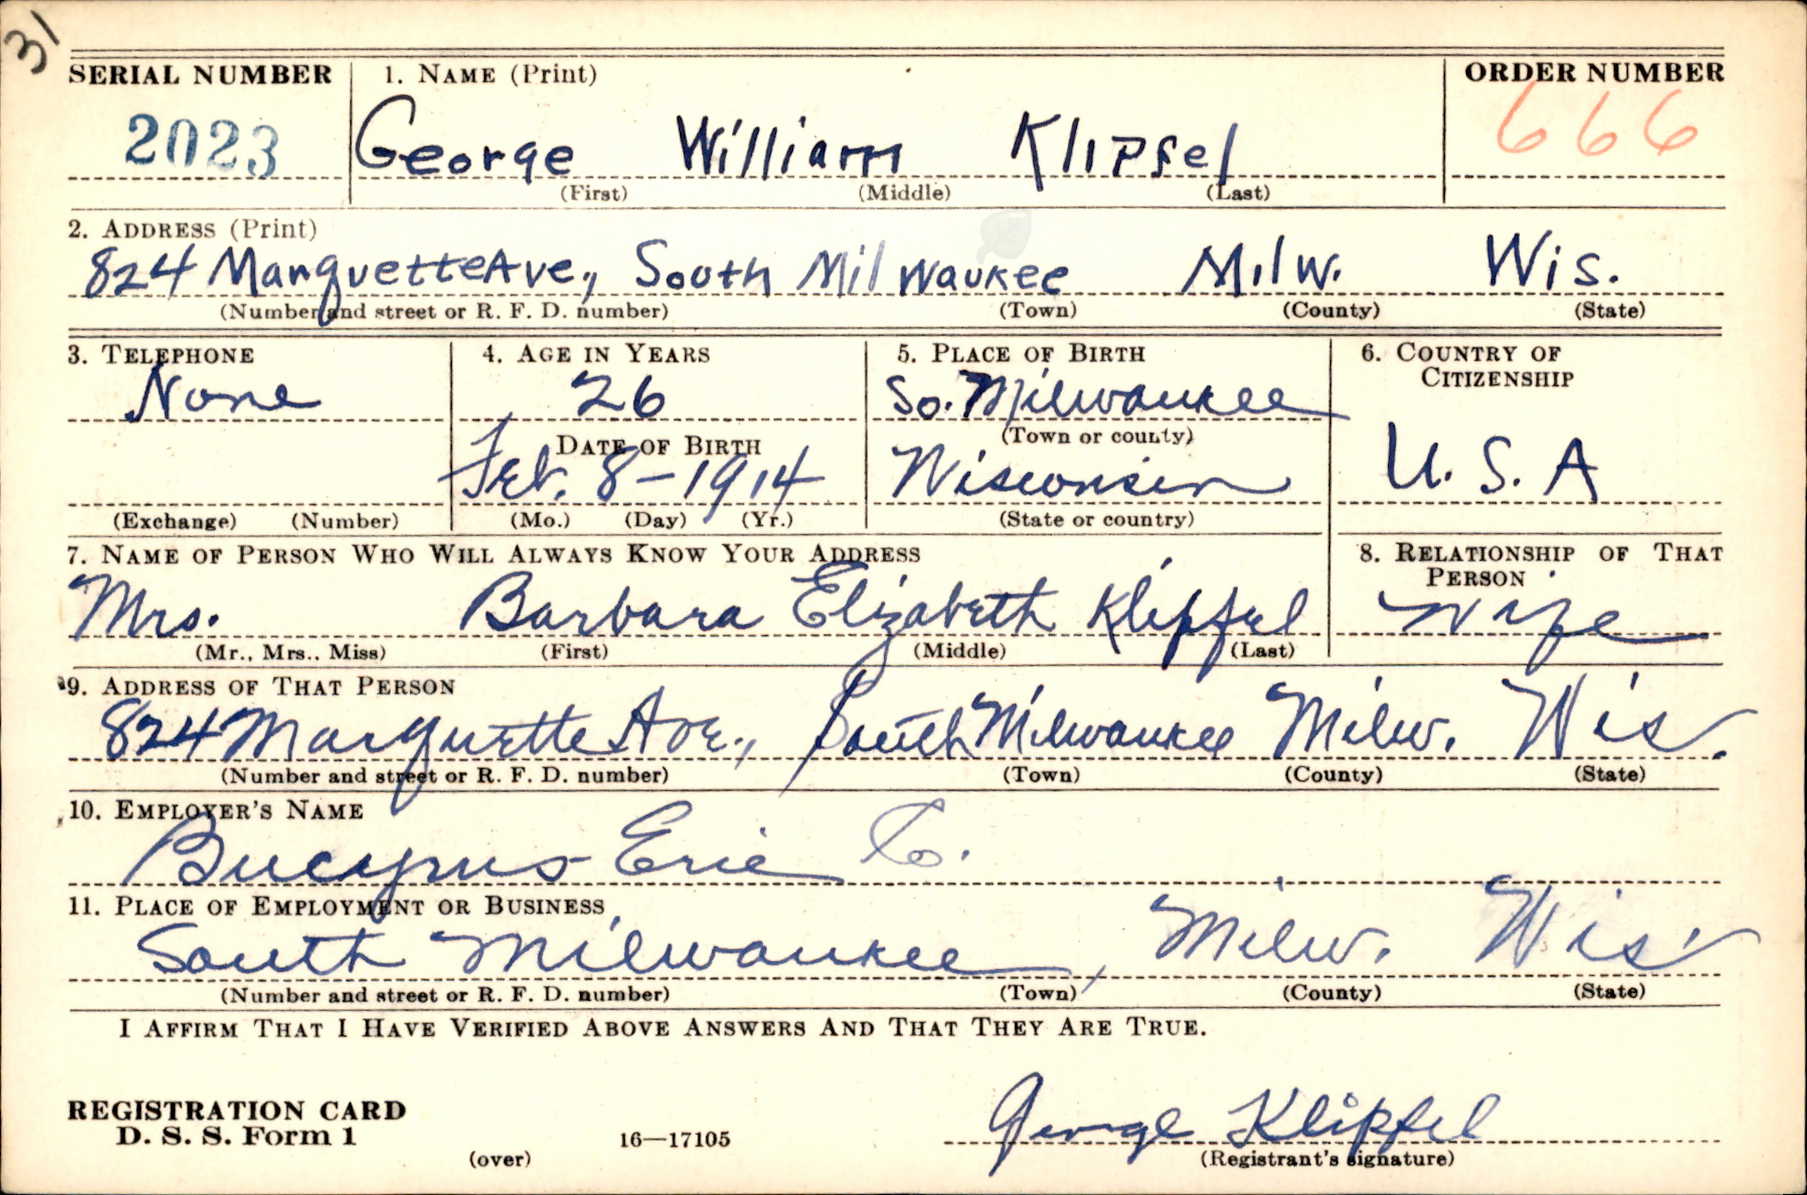 31
SERIAL NUMBER 1. NAME (Print) ORDER NUMBER
2023 George William Klipfel 666
(First) (Middle) (Last)
2. ADDRESS (Print)
824 Marquette Ave., South Milwaukee Milw. Wis.
(Number and street or R. F. D. number) (Town) (County) (State)
3. TELEPHONE 4. AGE IN YEARS 5. PLACE OF BIRTH 6. COUNTRY OF CITIZENSHIP
None 26 So. Milwaukee
(Town or county)
DATE OF BIRTH
Feb. 8-1914 Wisconsin U.S.A
(Exchange) (Number) (Mo.) (Day) (Yr.) (State or country)
7. NAME OF PERSON WHO WILL ALWAYS KNOW YOUR ADDRESS 8. RELATIONSHIP OF THAT PERSON
Mrs. Barbara Elizabeth Klipfel Wife
(Mr., Mrs., Miss) (First) (Middle) (Last)
9. ADDRESS OF THAT PERSON
824 Marquette Ave., South Milwaukee Milw. Wis.
(Number and street or R. F. D. number) (Town) (County) (State)
10. EMPLOYER'S NAME
Bucyrus-Erie Co.
11. PLACE OF EMPLOYMENT OR BUSINESS
South Milwaukee, Milw. Wis.
(Number and street or R. F. D. number) (Town) (County) (State)
I AFFIRM THAT I HAVE VERIFIED ABOVE ANSWERS AND THAT THEY ARE TRUE.
REGISTRATION CARD
D. S. S. Form 1 16—17105 George Klipfel
(over) (Registrant's signature)